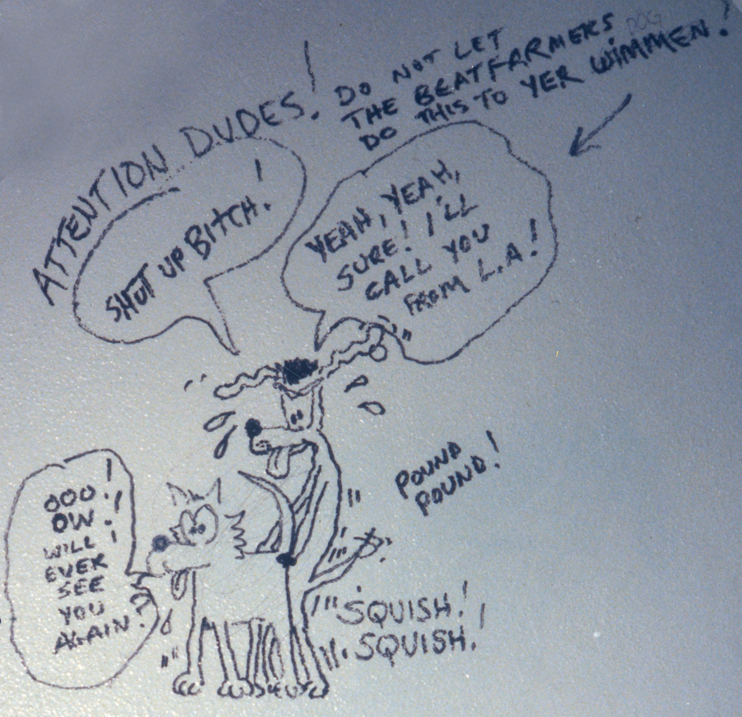 ATTENTION DUDES!
DO NOT LET
THE BEATFARMERS
DOG
DO THIS TO YER WIMMEN!
SHUT UP BITCH!
YEAH, YEAH,
SURE! I'LL
CALL YOU
FROM L.A!
OOO!
OW!
WILL I
EVER
SEE
YOU
AGAIN?
POUND
POUND!
SQUISH!
SQUISH!